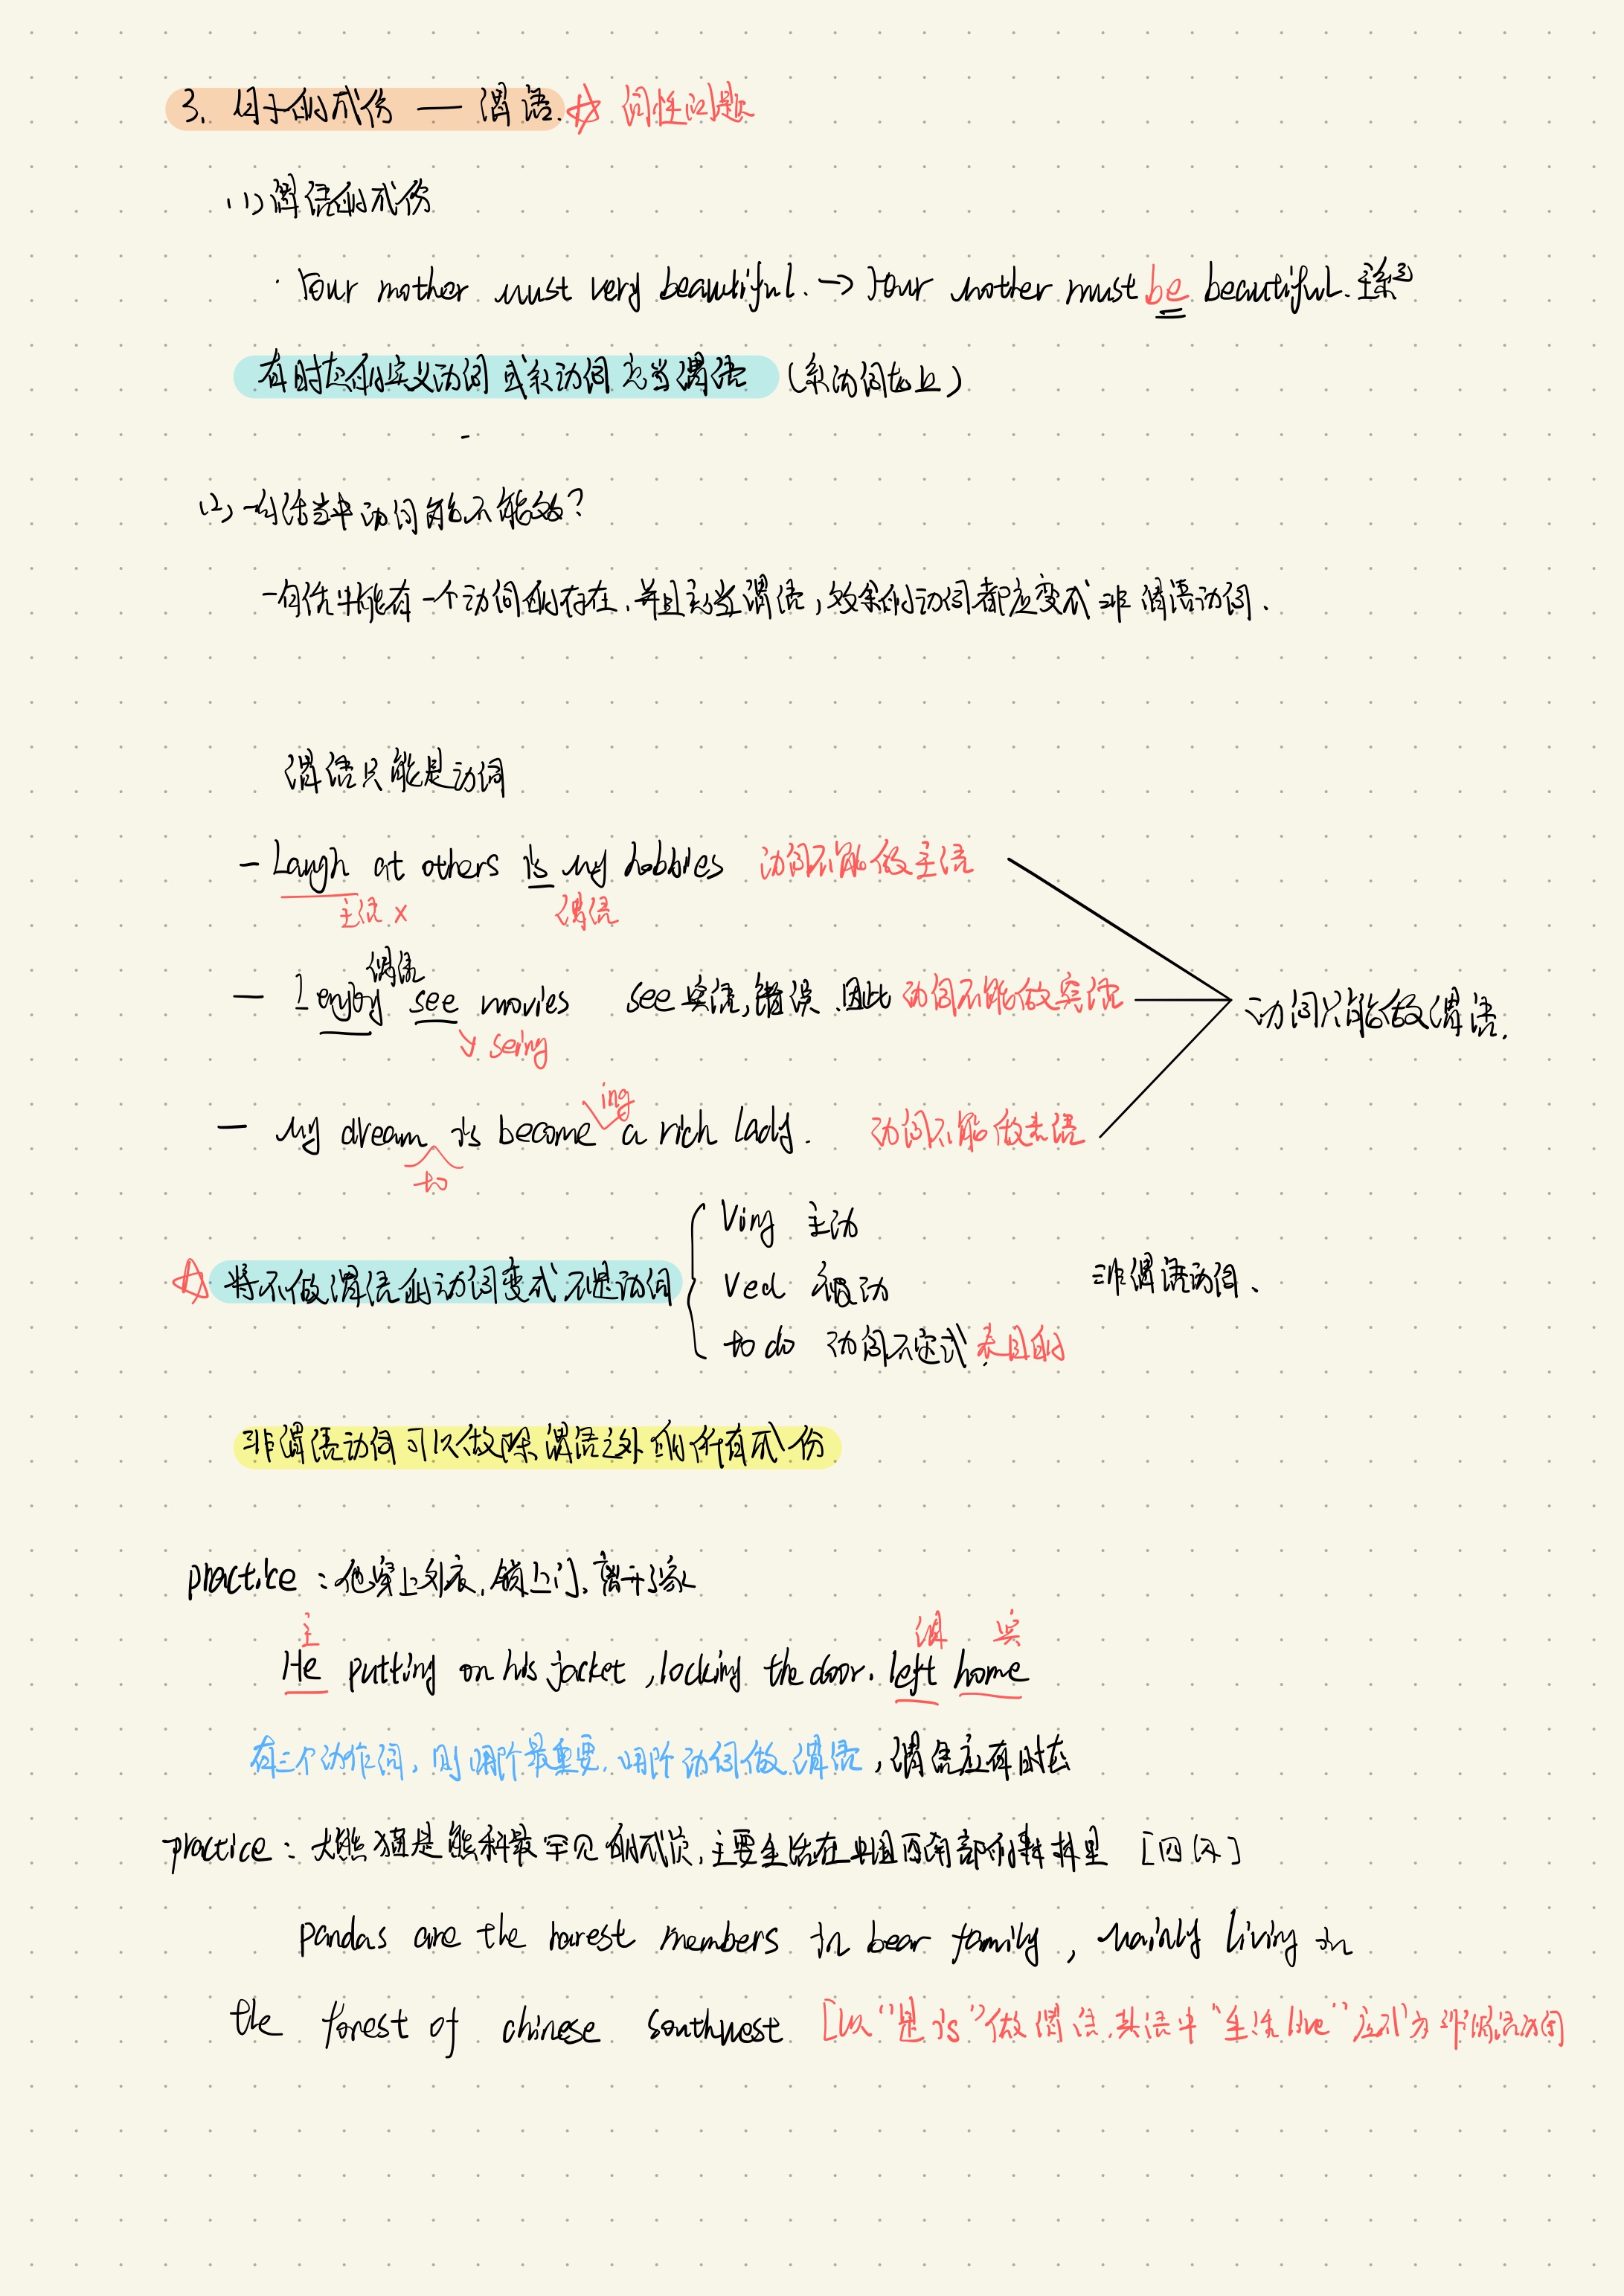 3. 句子的成份 — 谓语. ☆ 词性问题
(1) 谓语的成份
· Your mother must very beautiful. → Your mother must be beautiful. 主系表
有时态的实义动词或系动词充当谓语 (系动词如上)
(2) 一句话当中动词能不能多?
一句话中只能有一个动词的存在,并且充当谓语,多余的动词都应变成非谓语动词.
谓语只能是动词
— Laugh at others is my hobbies 动词不能做主语
主语 × 谓语
谓语
— I enjoy see movies see 宾语,错误.因此 动词不能做宾语
↘ seing
动词只能做谓语.
ing
— My dream is become a rich lady. 动词不能做表语
to
Ving 主动
☆ 将不做谓语的动词变成不是动词 Ved 被动 非谓语动词、
to do 动词不定式 表目的
非谓语动词可以做除谓语之外的所有成份
practice : 他穿上外衣,锁上门,离开了家
主 谓 宾
He putting on his jacket , locking the door. left home
有三个动作词,则哪个最重要,哪个动词做谓语,谓语应有时态
practice : 大熊猫是熊科最罕见的成员,主要生活在中国西南部的森林里 [四级]
Pandas are the rarest members in bear family , mainly living in
the forest of chinese southwest [以“是 is”做谓语,其语中“生活 live”应示为非谓语动词